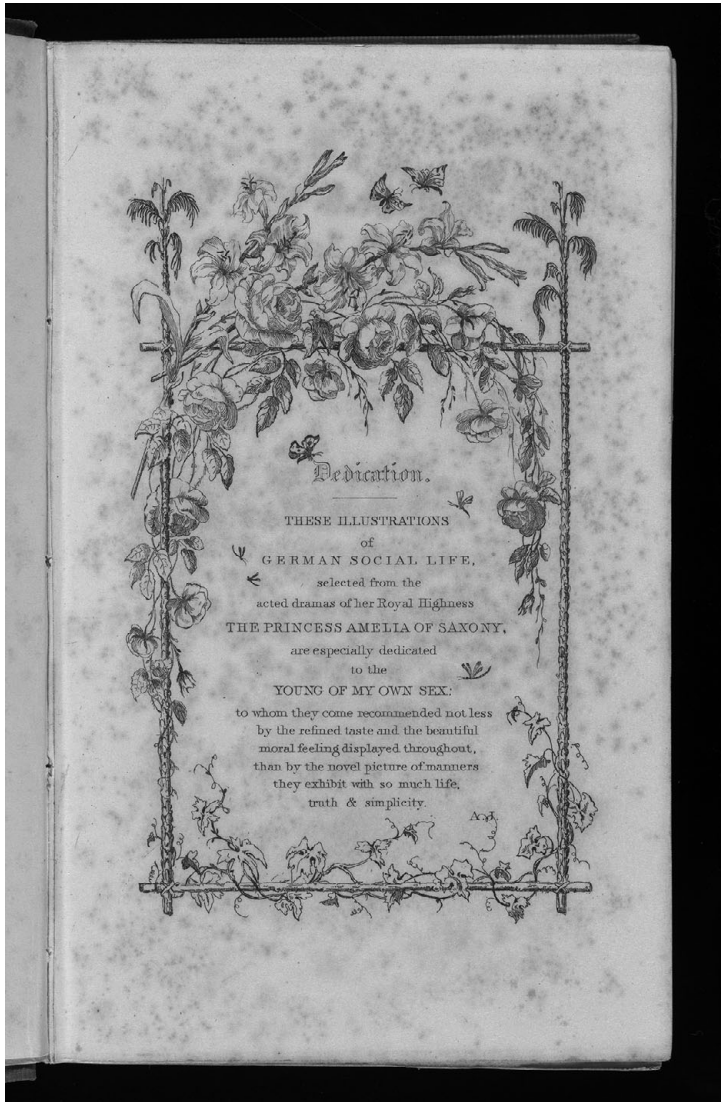 Dedication.
THESE ILLUSTRATIONS
of
GERMAN SOCIAL LIFE,
selected from the
acted dramas of her Royal Highness
THE PRINCESS AMELIA OF SAXONY,
are especially dedicated
to the
YOUNG OF MY OWN SEX:
to whom they come recommended not less
by the refined taste and the beautiful
moral feeling displayed throughout,
than by the novel picture of manners
they exhibit with so much life,
truth & simplicity.
A.J.